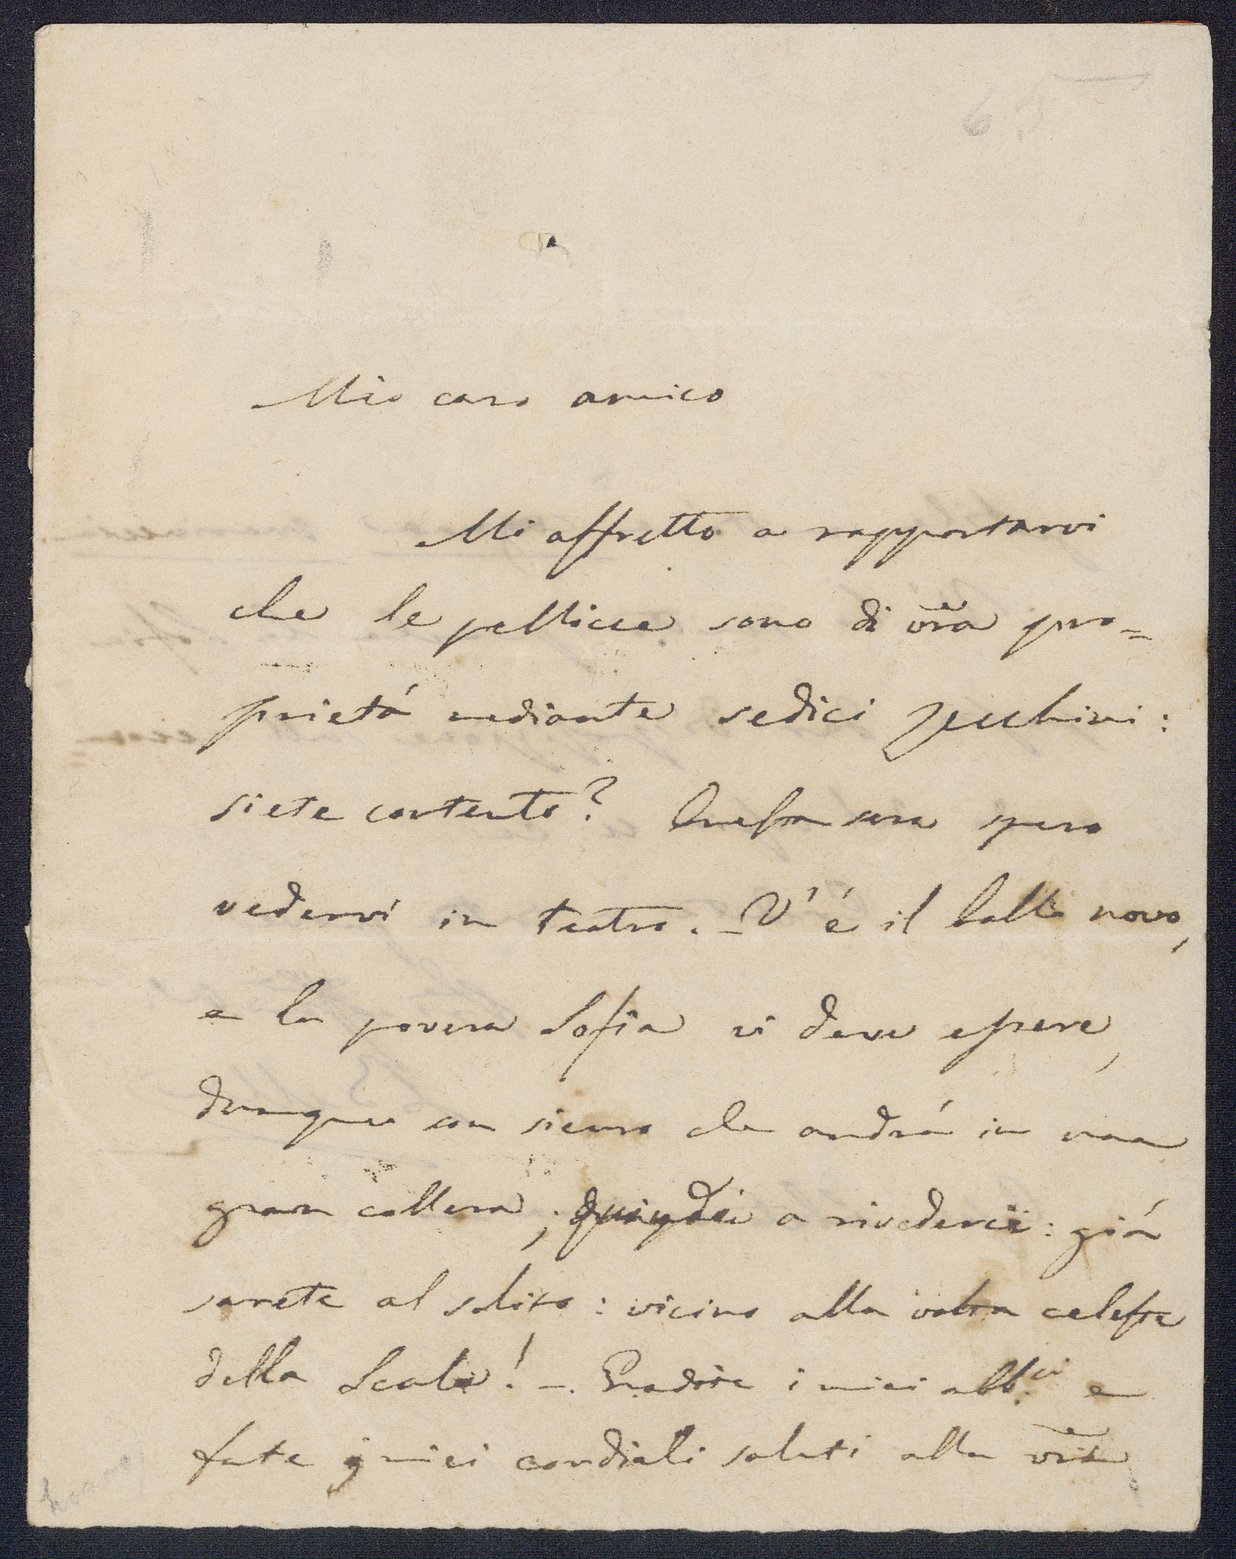 Mio caro amico
Mi affretto a rapportarvi
che le pellicce sono di vr̃a pro=
prietá mediante sedici zecchini:
siete contento? Questa sera spero
vedervi in teatro. – V'é il ballo novo,
e la povera Sofia vi deve essere,
dunque son sicuro che andrá in una
gran collera; quindi a rivederci: giá
sarete al solito: vicino alla volta celeste
della Scala! –. Gradite i miei abb.ci e
fate i miei cordiali saluti alla vr̃a